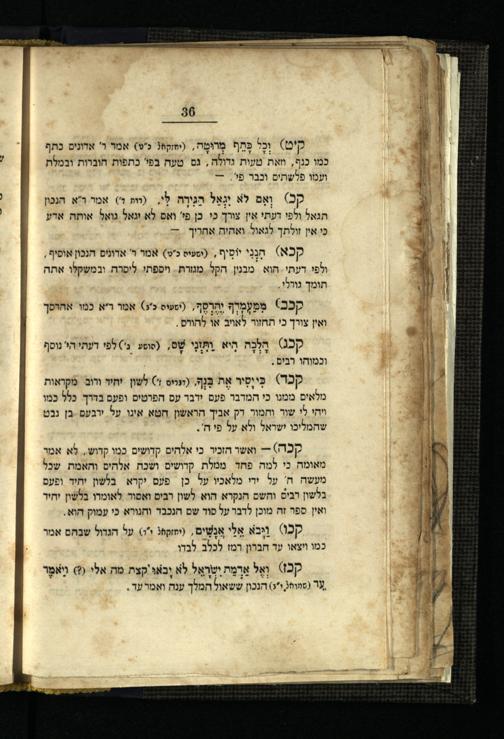 36
קיט) וְכָל כָּתֵף מְרוּטָה, (יחזקאל כ״ט) אמר ר׳ אדונים כתף
כמו כנף, וזאת טעות גדולה, גם טעה בפי׳ כתפות חוברות ובמלת
ועפו פלשתים וכבר פי׳. —
קכ) וְאִם לֹא יִגְאַל הַגִּידָה לִּי, (רות ד׳) אמר ר״א הנכון
תגאל ולפי דעתי אין צורך כי כן פי׳ ואם לא יגאל גואל אותה אדע
כי אין זולתך לגאול ואהיה אחריך —
קכא) הִנְנִי יוֹסִיף, (ישעיה כ״ט) אמר ר׳ אדונים הנכון אוסיף,
ולפי דעתי הוא מבנין הקל מגזרת ויספתי ליסרה ובמשקלו אתה
תומך גורלי.
קכב) מִמַּעֲמָדְךָ יֶהֶרְסֶךָ, (ישעיה כ״ב) אמר ר״א כמו אהרסך
ואין צורך כי תחזור לאויב או להורס.
קכג) הָלְכָה הִיא וַתִּזְנִי שָׁם, (הושע ב׳) לפי דעתי הי׳ נוסף
וכמוהו רבים.
קכד) כִּי יָסִיר אֶת בִּנְךָ, (דברים ז׳) לשון יחיד ורוב מקראות
מלאים ממנו כי המדבר פעם ידבר עם הפרטים ופעם בדרך כלל כמו
ויהי לי שור וחמור רק אביך הראשון חטא אינו על ירבעם בן נבט
שהמליכו ישראל ולא על פי ה׳.
קכה) — ואשר הזכיר כי אלהים קדושים כמו קדוש, לא אמר
מאומה כי למה פחד ממלת קדושים ושכח אלהים והאמת שכל
מעשה ה׳ על ידי מלאכיו על כן פעם יקרא בלשון יחיד ופעם
בלשון רבים והשם הנקרא הוא לשון רבים ואסור לאומרו בלשון יחיד
ואין ספר זה מוכן לדבר על סוד שם הנכבד והנורא כי עמוק הוא.
קכו) וַיָּבֹא אֵלַי אֲנָשִׁים, (יחזקאל י״ד) על הגדול שבהם אמר
כמו ויצאו עד חברון רמז לכלב לבדו
קכז) וְאֶל אַדְמַת יִשְׂרָאֵל לֹא יָבֹאוּ קצת מה אלי (?) וַיֹּאמֶר
עֵד (שמואל י״ב) הנכון ששאול המלך ענה ואמר עד.